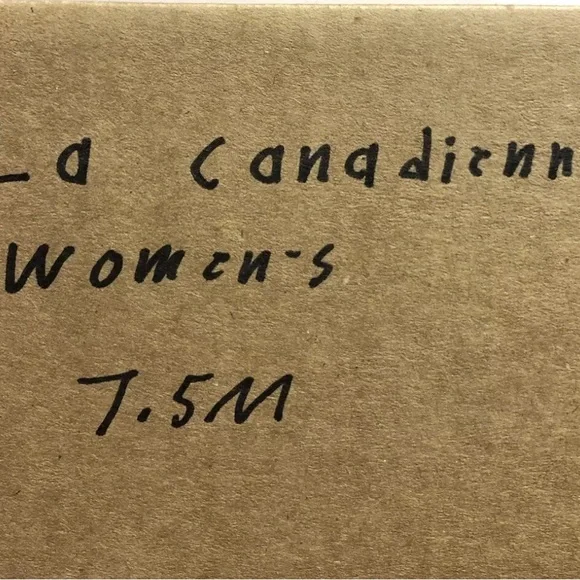 La Canadienn
Women's
7.5M